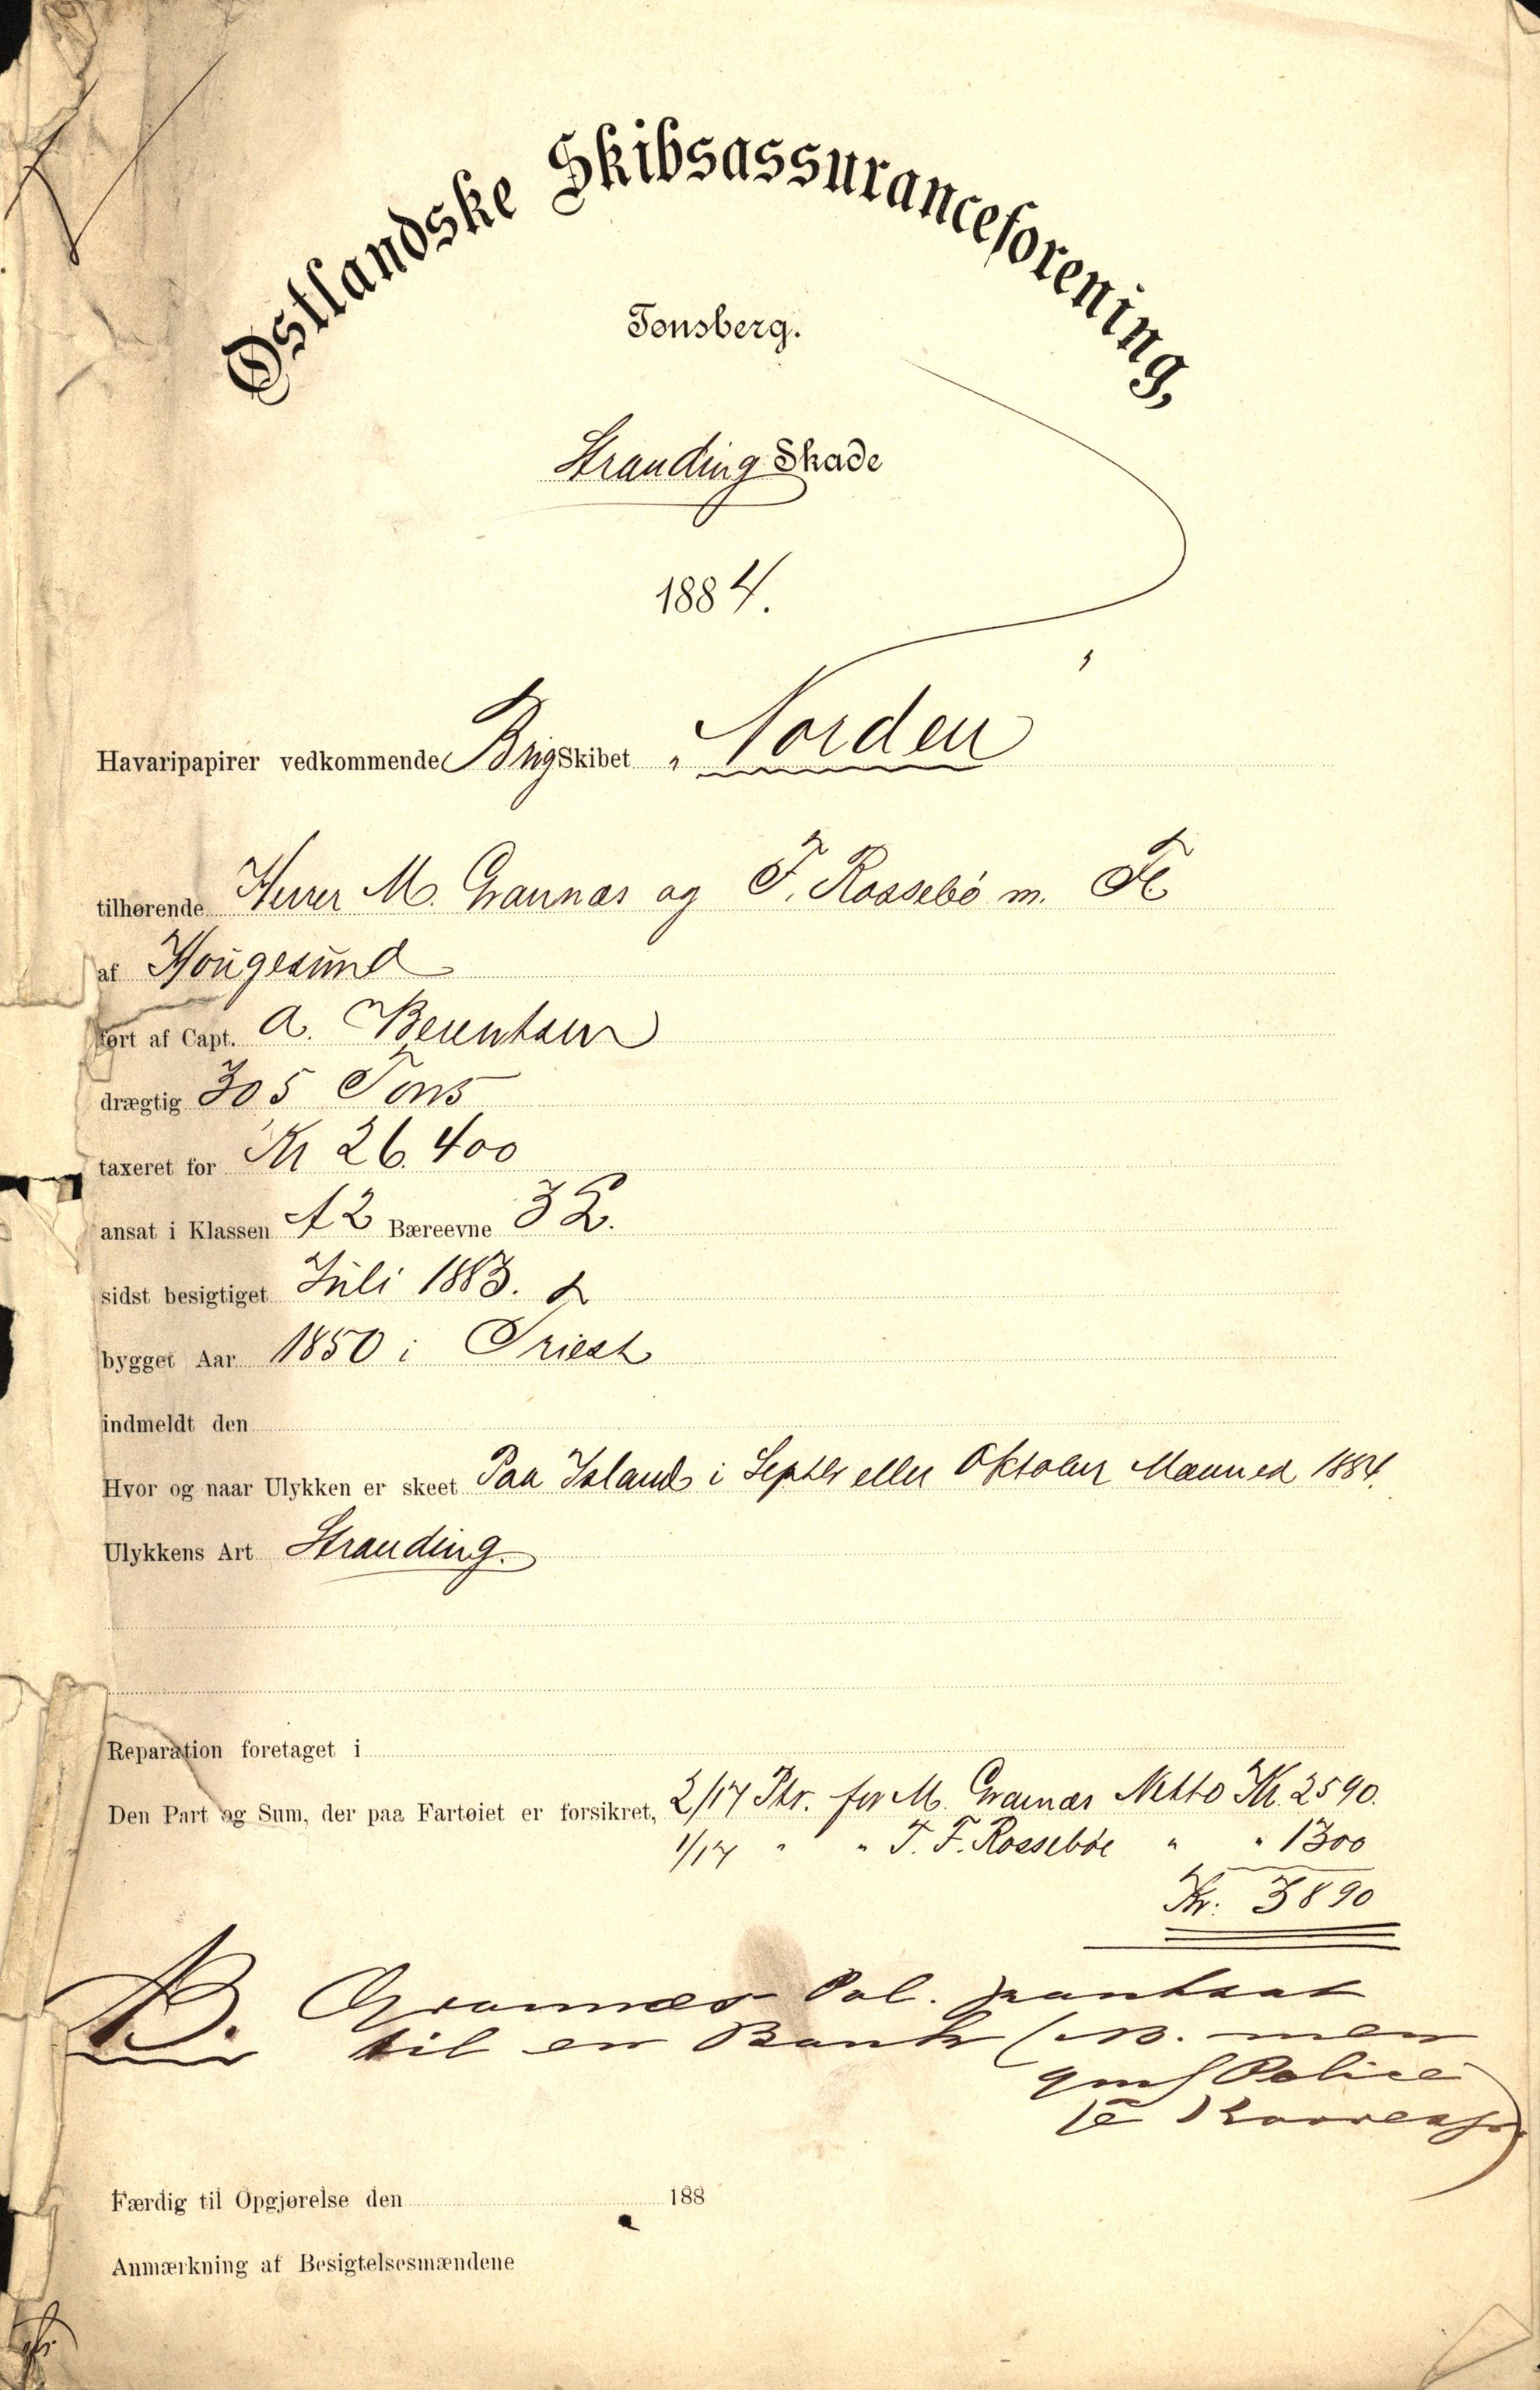 Østlandske Skibsassuranceforening,
Tønsberg.
Stranding Skade
1884.
Havaripapirer vedkommende Brig Skibet „Norden"
tilhørende Herrer M. Grannæs og F. Rossebö m. Fl
af Hougesund
ført af Capt. A. Berentsen
drægtig 305 Tons
taxeret for Kr 26.400
ansat i Klassen A2 Bæreevne 3 L.
sidst besigtiget Juli 1883.
bygget Aar 1850 i Triest
indmeldt den
Hvor og naar Ulykken er skeet Paa Island i Septbr eller Oktober Maaned 1884.
Ulykkens Art Stranding.
Reparation foretaget i
Den Part og Sum, der paa Fartøiet er forsikret, 2/17 Ptr. for M. Grannæs Netto Kr. 2590.
1/17 " " T. F. Rossebøe " " 1300
Kr. 3890
NB. Grannæs Pol. pantsat
til en Bank (NB. men
Police
Færdig til Opgjørelse den 188
Anmærkning af Besigtelsesmændene